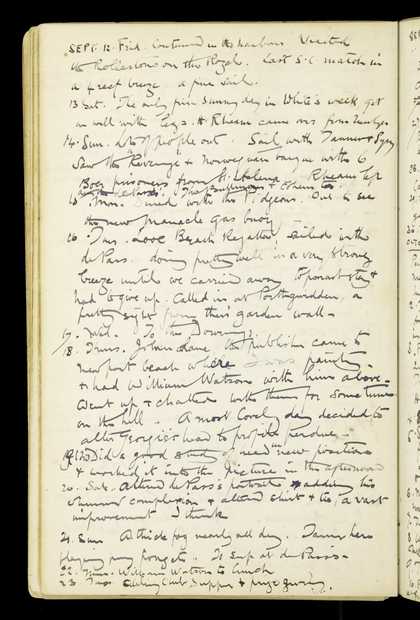 SEPT. 12. Frid. Continued in the harbour. Visited
the Rollestons on the Royal. Last S.C match in
a 4 reef breeze. a fine sail.
13 Sat. The only fine Sunny day in White's week got
on well with Legs. H. Rheam came over from
14. Sun. Lots of people out. Sail with Tanner &
Saw the Revenge & Norwegian barque with 6
Boer prisoners from St. Helena. Rheam left
15. Mon. with the Pidgeons. Out to see
the new Manacle gas buoy
16. Tues. Beach Regatta, sailed with
de Pass. doing pretty well in a very strong
breeze until we carried away topmast stay &
had to give up. Called in at Porthgwidden, a
pretty sight from their garden wall.
17. Wed. To the Downings
18. Thurs. John Lane the publisher came to
Newport beach where I was painting
& had William Watson with him also.
Went up & chatted with them for sometime
on the hill. A most lovely day decided to
alter Georgie's head to profile perdue.
19. Did a good study of head in new position
& worked it into the picture in the afternoon
20. Sat. Altered de Pass's portrait adding his
summer complexion & altered shirt & tie, a vast
improvement I think
21. Sun A thick fog nearly all day. Tanner here
playing my fugets. To Sup at de Pass's.
22. Mon. William Watson to lunch
23. Tues. Sailing Club Supper & prize giving.